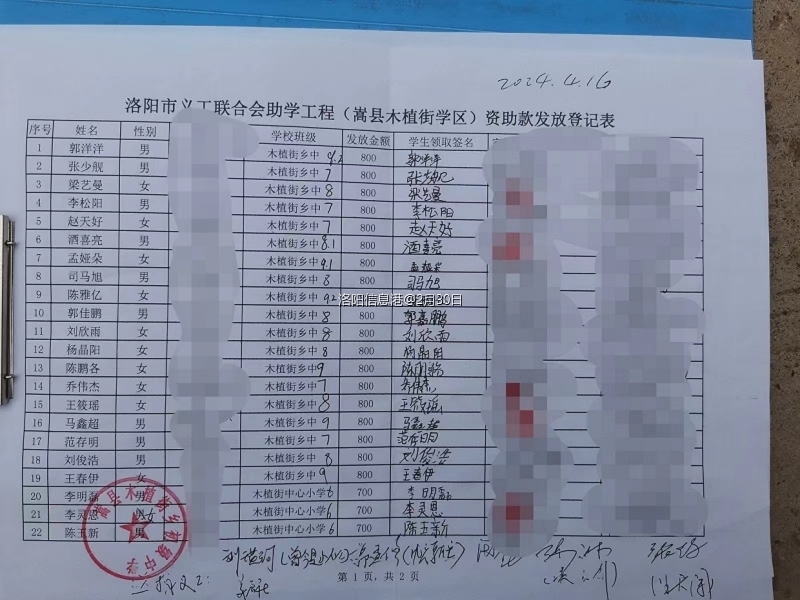 2024.4.16
洛阳市义工联合会助学工程（嵩县木植街学区）资助款发放登记表
序号 姓名 性别 学校班级 发放金额 学生领取签名
1 郭洋洋 男 木植街乡中 9.2 800
2 张少舰 男 木植街乡中 7 800
3 梁艺曼 女 木植街乡中 8 800 梁艺曼
4 李松阳 男 木植街乡中 7 800 李松阳
5 赵天好 女 木植街乡中 7 800 赵天好
6 酒喜亮 男 木植街乡中 8.1 800 酒喜亮
7 孟娅朵 女 木植街乡中 9.1 800
8 司马旭 男 木植街乡中 8 800 司马旭
9 陈雅亿 女 木植街乡中 9.2 800
洛阳信息港@2月30日
10 郭佳鹏 男 木植街乡中 8 800
11 刘欣雨 女 木植街乡中 8 800 刘欣雨
12 杨晶阳 女 木植街乡中 8 800 杨晶阳
13 陈鹏各 女 木植街乡中 9 800
14 乔伟杰 女 木植街乡中 7 800 乔伟杰
15 王筱瑶 女 木植街乡中 8 800 王筱瑶
16 马鑫超 男 木植街乡中 9 800 马鑫超
17 范存明 男 木植街乡中 7 800 范存明
18 刘俊浩 男 木植街乡中 8 800 刘俊浩
19 王春伊 女 木植街乡中 9 800 王春伊
20 李明磊 男 木植街中心小学 6 700 李明磊
21 李灵恩 女 木植街中心小学 6 700 李灵恩
22 陈玉新 男 木植街中心小学 6 700 陈玉新
嵩县木植街乡初级中学
第 1 页，共 2 页